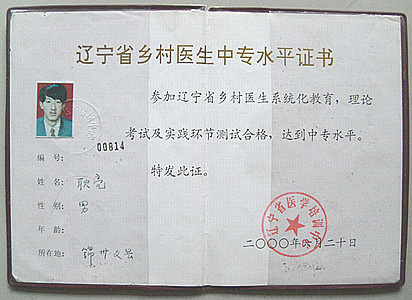 辽宁省乡村医生中专水平证书
00814
编号:
姓名: 耿亮
性别: 男
年龄:
所在地: 锦州义县
参加辽宁省乡村医生系统化教育,理论
考试及实践环节测试合格,达到中专水平。
特发此证。
辽宁省医学培训
二〇〇〇年 月二十日